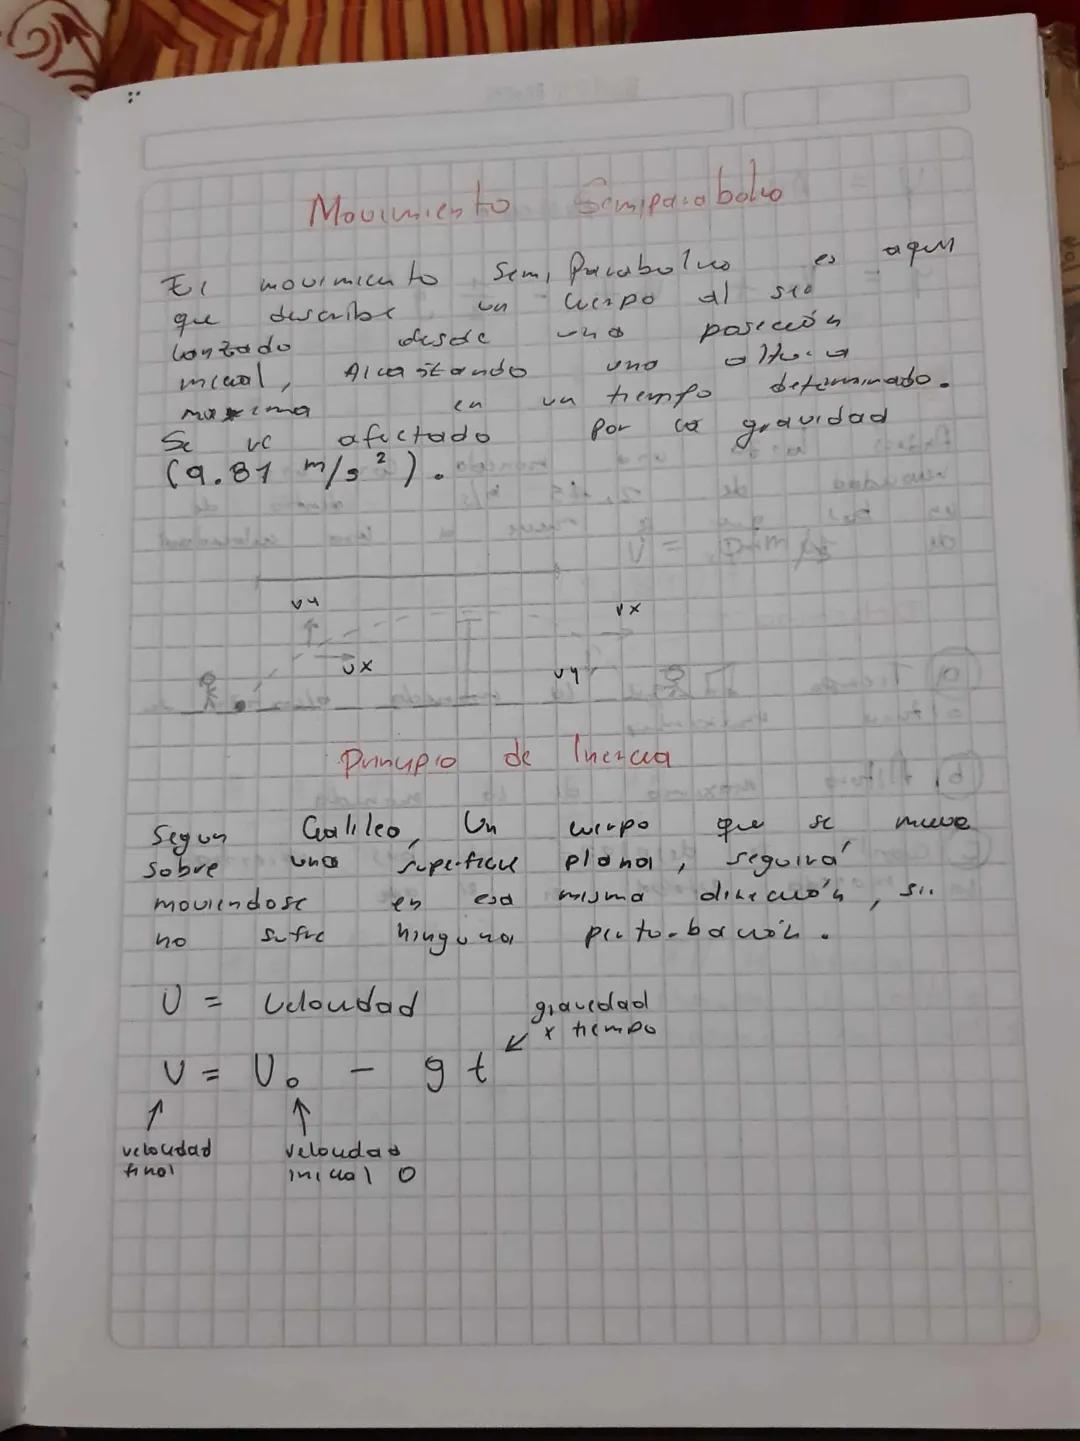 Movimiento Semiparabolico
El movimiento Semiparabolico es aquel
que describe un cuerpo al ser
lanzado desde una posición
inicial, Alcanzando una altura
maxima en un tiempo determinado.
Se ve afectado por la gravidad
(9.81 m/s²).
vy
vx
vx
vy
Principio de Inercia
Segun Galileo, Un cuerpo que se mueve
sobre una superficie plana, seguirá
moviendose en esa misma dirección, si
no sufre ninguna perturbación.
V = velocidad
gravedad
x tiempo
V = V₀ - gt
velocidad
final
velocidad
inicial 0